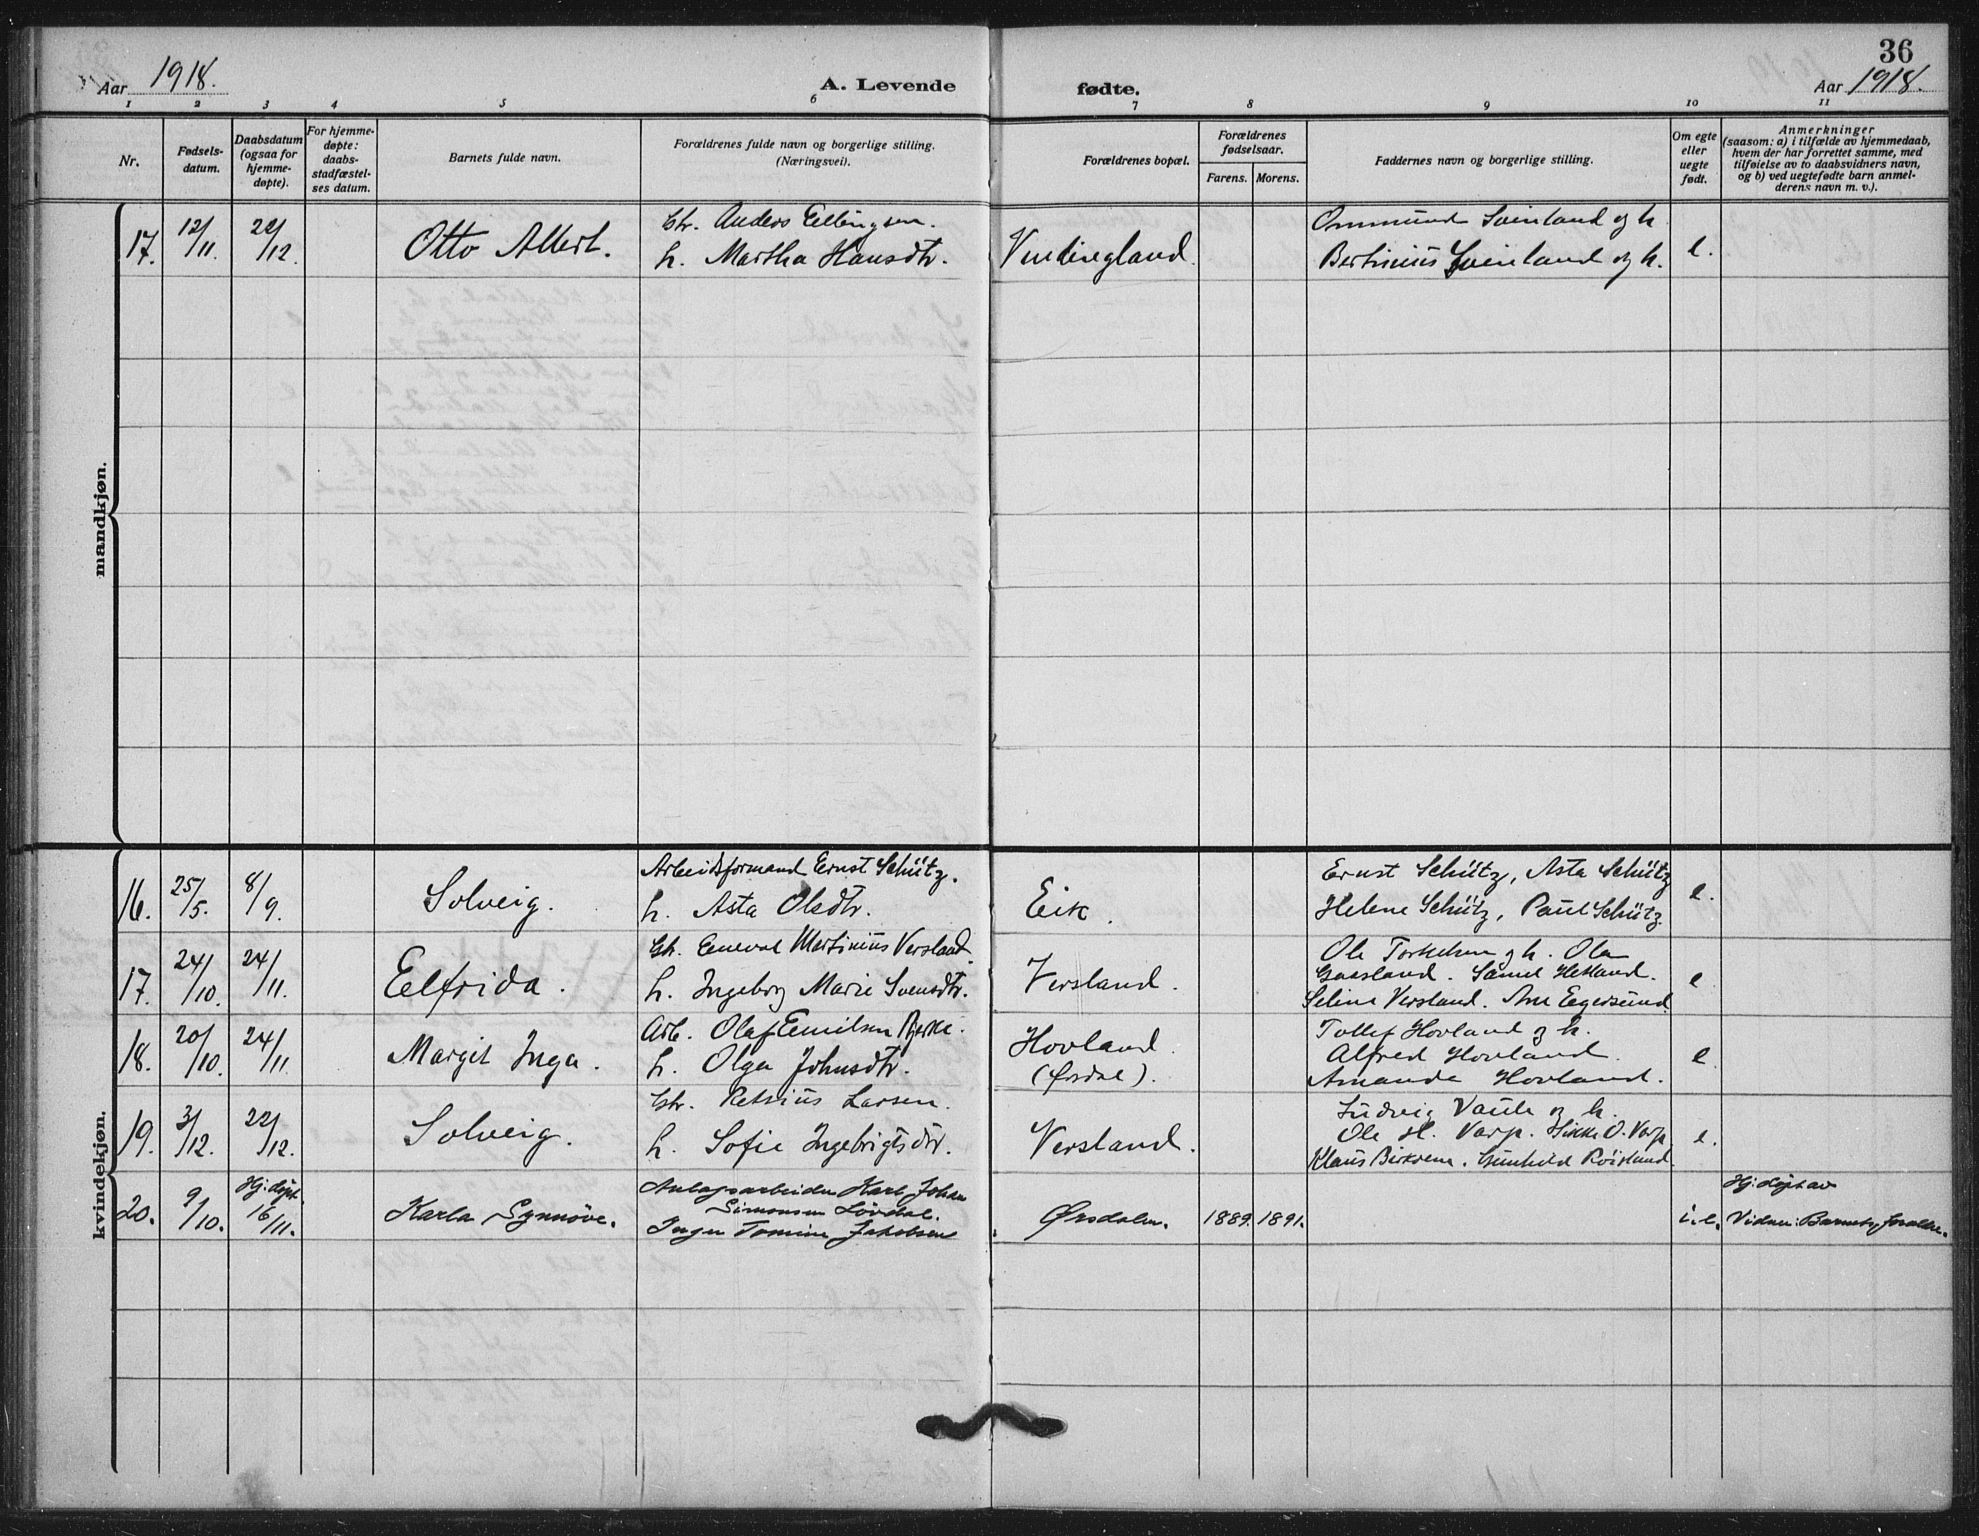 36
Aar 1918.
A. Levende fødte.
Aar 1918.
1 2 3 4 5 6 7 8 9 10 11
Nr.
Fødsels-
datum.
Daabsdatum
(ogsaa for
hjemme-
døpte).
For hjemme-
døpte:
daabs-
stadfæstel-
ses datum.
Barnets fulde navn.
Forældrenes fulde navn og borgerlige stilling.
(Næringsvei).
Forældrenes bopæl.
Forældrenes
fødselsaar.
Farens. Morens.
Faddernes navn og borgerlige stilling.
Om egte
eller
uegte
født.
Anmerkninger
(saasom: a) i tilfælde av hjemmedaab,
hvem der har forrettet samme, med
tilføielse av to daabsvidners navn,
og b) ved uegtefødte barn anmel-
derens navn m. v.).
mandkjøn.
17. 12/11. 22/12. Otto Albert.
Gbr. Anders Ellingsen.
h. Martha Hansdtr.
Vindingland
Ommund Sveinland og h.
Bertinius Sveinland og h.
e.
kvindekjøn.
16. 25/5. 8/9. Solveig.
Arbeidsformand Ernst Schütz.
h. Asta Olsdtr.
Eik.
Ernst Schütz, Asta Schütz
Helene Schütz, Paul Schütz.
e.
17. 24/10. 24/11. Elfrida.
Gbr. Enevald Martinius Versland.
h. Ingeborg Marie Svensdtr.
Versland.
Ole Torkelsen og h. Ola
Gaasland. Samel Hetland.
Seline Versland. Ane Egersund
e
18. 20/10. 24/11. Margit Inga.
Arb. Olaf Emilsen Bjerke.
h. Olga Johnsdtr.
Hovland.
(Ørsdal).
Tollef Hovland og h.
Alfred Hovland.
Amanda Hovland.
e
19. 3/12. 22/12. Solveig.
Gbr. Retsius Larsen.
h. Sofie Ingebrigtsdtr.
Versland.
Ludvig Vaule og h.
Ole H. Varp. Hikke O. Varp
Klaus Birkrem. Gunhild Røisland
e.
20. 9/10. Hj: døpt. 16/11. Karla Synnöve.
Anlægsarbeider Karl Johan
Simonsen Lövdal.
Inger Tomine Jakobsen
Ørsdalen. 1889. 1891.
i. e.
Hj: døpt av
Vidner: Barnets forældre.